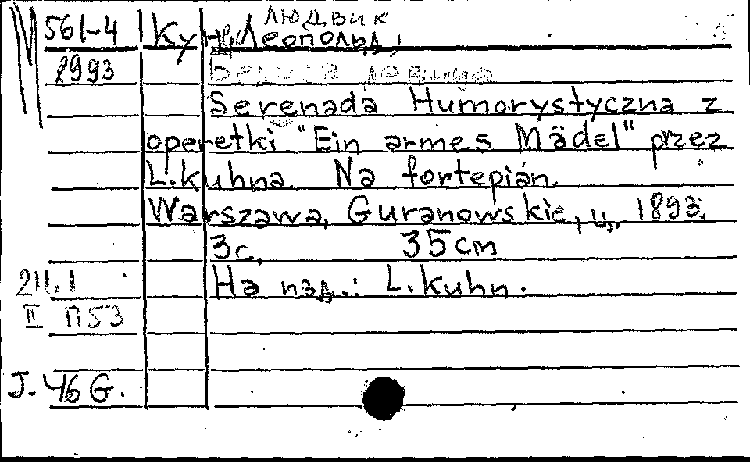 людвик
М 561-4 Кун, Леопольд,
2993
Serenada Humorystyczna z
operetki "Ein armes Mädel" przez
L.kuhna. Na fortepian.
Warszawa, Guranowskie, u,, 1893.
3с. 35cm
211.1 На изд.: L.kuhn.
II П53
J. 46 G.